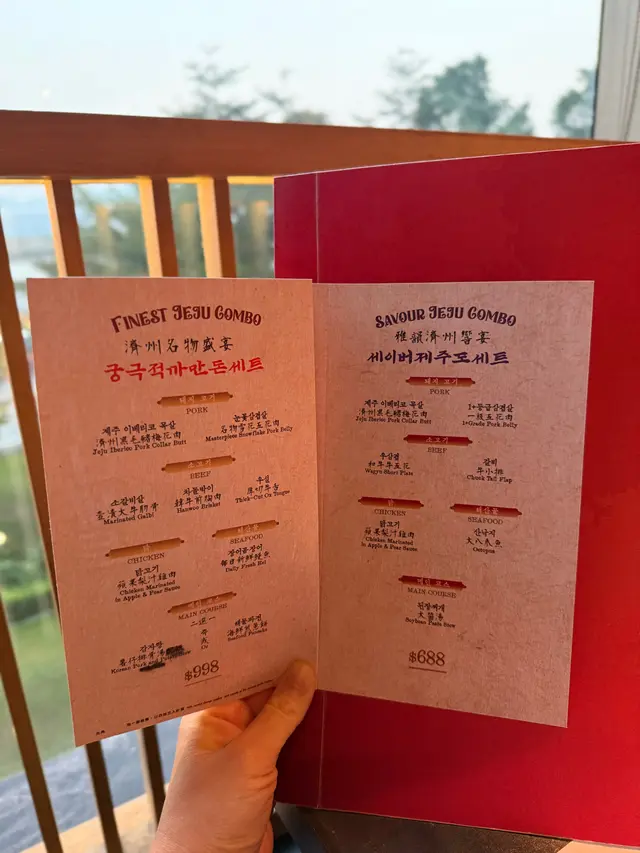 FINEST JEJU COMBO
濟州名物盛宴
궁극적까만돈세트
돼지 고기
PORK
제주 이베리코 목살
濟州黑毛豬梅花肉
Jeju Iberico Pork Collar Butt
눈꽃삼겹살
名物雪花五花肉
Masterpiece Snowflake Pork Belly
소고기
BEEF
소갈비살
Marinated Galbi
차돌박이
韓牛前胸肉
Hanwoo Brisket
우설
厚切牛舌
Thick-Cut Ox Tongue
닭
CHICKEN
닭고기
蘋果梨汁雞肉
Chicken Marinated
in Apple & Pear Sauce
해산물
SEAFOOD
장어꼼장어
每日新鮮鰻魚
Daily Fresh Eel
메인 코스
MAIN COURSE
二選一
감자탕
薯仔排骨湯
Korean Pork and
或
Or
해물파전
海鮮煎蔥餅
Seafood Pancake
$998
SAVOUR JEJU COMBO
雅韻濟州饗宴
세이버제주도세트
돼지 고기
PORK
제주 이베리코 목살
濟州黑毛豬梅花肉
Jeju Iberico Pork Collar Butt
1+등급삼겹살
一級五花肉
1+Grade Pork Belly
소고기
BEEF
우삼겹
和牛牛五花
Wagyu Short Plate
갈비
牛小排
Chuck Tail Flap
닭
CHICKEN
닭고기
蘋果梨汁雞肉
Chicken Marinated
in Apple & Pear Sauce
해산물
SEAFOOD
산낙지
大八爪魚
Octopus
메인 코스
MAIN COURSE
된장찌개
大醬湯
Soybean Paste Stew
$688